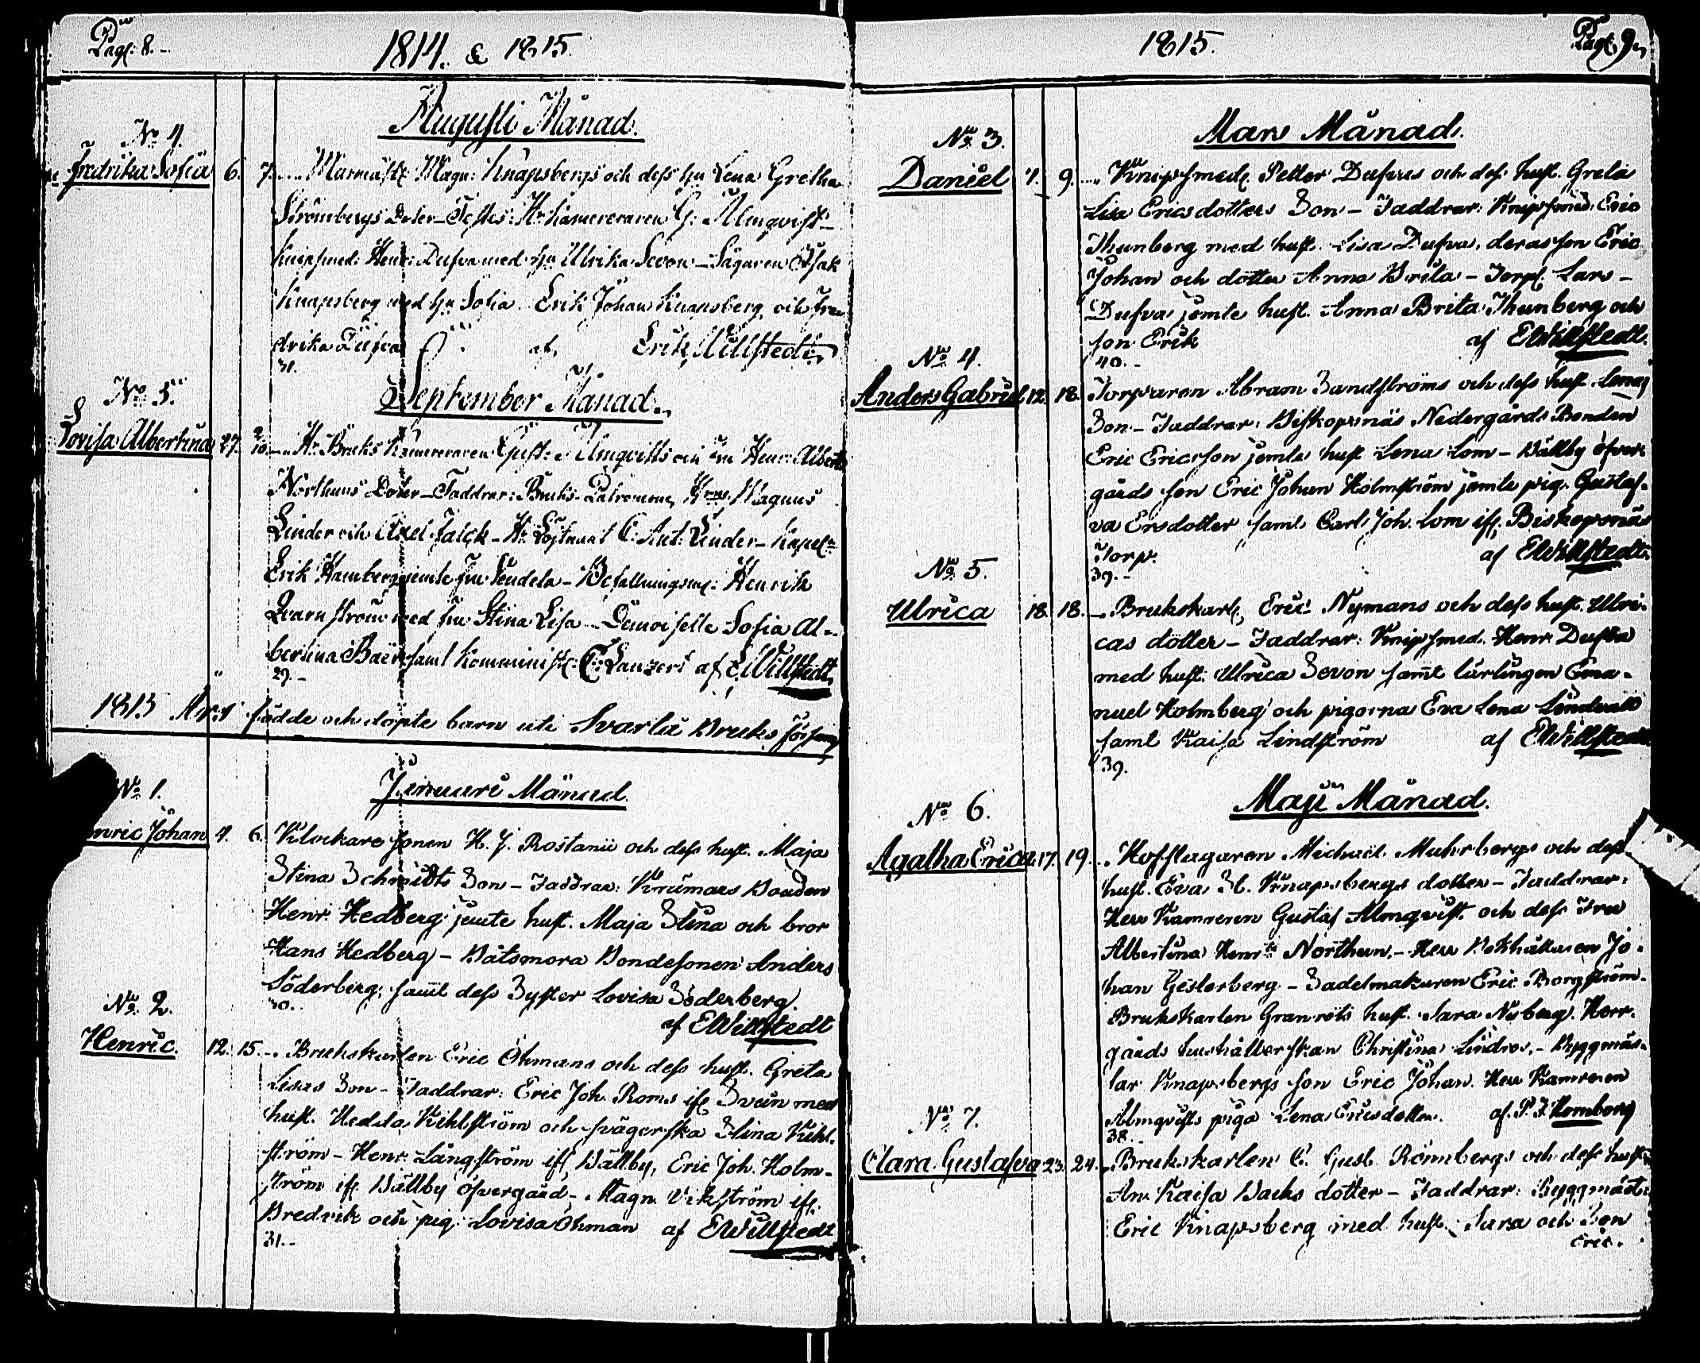 Pag: 8.
1814. & 1815.
Augusti Månad.
No 4
Fredrika Sofia 6. 7. Magn: Knapsbergs och dess hu Lena Gretha
Strömbergs Doter - Testes: Hr Kamereraren G: Almqvist -
Knipsmed: Henr: Dufva med hu Ulrika Sevon - Sågaren Isak
Knapsberg med hu Sofia. Erik Johan Knapsberg och Fre-
drika Dufva af Erik Willstedt
31.
September Månad.
No 5.
Lovisa Albertina 27. Hr Bruks Kamereraren Gust: Almqvists och fru Henr: Albert:
Northuns Doter - Faddrar: Bruks Patronerne, Magnus
Linder och Axel Falck - Hr Löjtnant C: Ant: Linder - Kapel:
Erik Hamberg jemte fru Vendela - Befallningsm: Henrik
Qvarnström med fru Stina Lisa - Demoiselle Sofia Al-
bertina Bäck samt Komminist: af E: Willstedt
29. -
1815 födde och döpte barn uti Svarta Bruks
Januari Månad
No 1.
Henric Johan 4. 6. Klockare sonen H. J. Rostanii och dess hust. Maja
Stina Schmidts Son - Faddrar: Krumars Bonden
Henr. Hedberg jemte hust. Maja Stina och bror
Hans Hedberg - Båtsmora Bondesonen Anders
Söderberg, samt dess Syster Lovisa Söderberg
30. -
af EWillstedt
No 2.
Henric. 12. 15. Brukskarlen Eric Öhmans och dess hust. Greta
Lisas Son - Faddrar: Eric Joh. Roms ifr. Svein med
hust. Hedda Kihlström och svägerska Stina Kihl-
ström - Henr. Långström ifr. Bällby, Eric Joh. Holm-
ström ifr. Bällby öfvergård - Magn. Vikström ifr.
Bredvik och pig. Lovisa Öhman af EWillstedt
31. -
1815.
Pag: 9
Mars Månad.
No 3.
Daniel 7. 9. Knipsmed. Petter Dufvas och dess hust. Greta
Lisa Ericsdotters Son - Faddrar: Knipsmed: Eric
Thunberg med hust. Lisa Dufva, deras son Eric
Johan och dotter Anna Brita - Torp. Lars -
Dufva jemte hust. Anna Brita Thunberg och
son Erik af EWillstedt.
40. -
No 4.
Anders Gabriel 12. 18. Torparen Abram Sandströms och dess hust. Lenas
Son - Faddrar: Biskopsnäs Nedergårds Bonden
Eric Ericsson jemte hust Lena Lom - Bällby öfver-
gårds son Eric Johan Holmström jemte pig. Gustaf-
va Ersdotter samt Carl Joh. Lom ifr. Biskopsnäs
Torp. af EWillstedt.
39. -
No 5.
Ulrica 18. 18. - Brukskarl. Eric Nymans och dess hust. Ulri-
cas dotter - Faddrar: Knipsmed. Henr. Dufva
med hust. Ulrica Sevon samt lärlingen Ema-
nuel Holmberg och pigorna Eva Lena Lindvall
samt Kaisa Lindström af EWillstedt
39.
Maji Månad.
No 6.
Agatha Erica 17. 19. Hofslagaren Michael Muhrbergs och dess
hust. Eva St. Knapsbergs dotter - Faddrar:
Herr Kamreren Gustaf Almqvist och dess Fru
Albertina Henr:ta Northun, - Herr Bokhållaren Jo-
han Gesterberg - Sadelmakaren Eric Borgström -
Brukskarlen Granrots hust. Sara Nyberg. Herr-
gårds hushållerskan Christina Lindros, - Byggmäs-
tar Knapsbergs son Eric Johan. Herr Kamreren
Almqvists piga Lena Ericsdotter. af P. J. Homborg
38. -
No 7.
Clara Gustafva 23. 24. - Brukskarlen C. Gust. Rönnbergs och dess hust:
An. Kaisa Backs dotter - Faddrar: Byggmäst:
Eric Knapsberg med hust. Sara och Son
Eric.